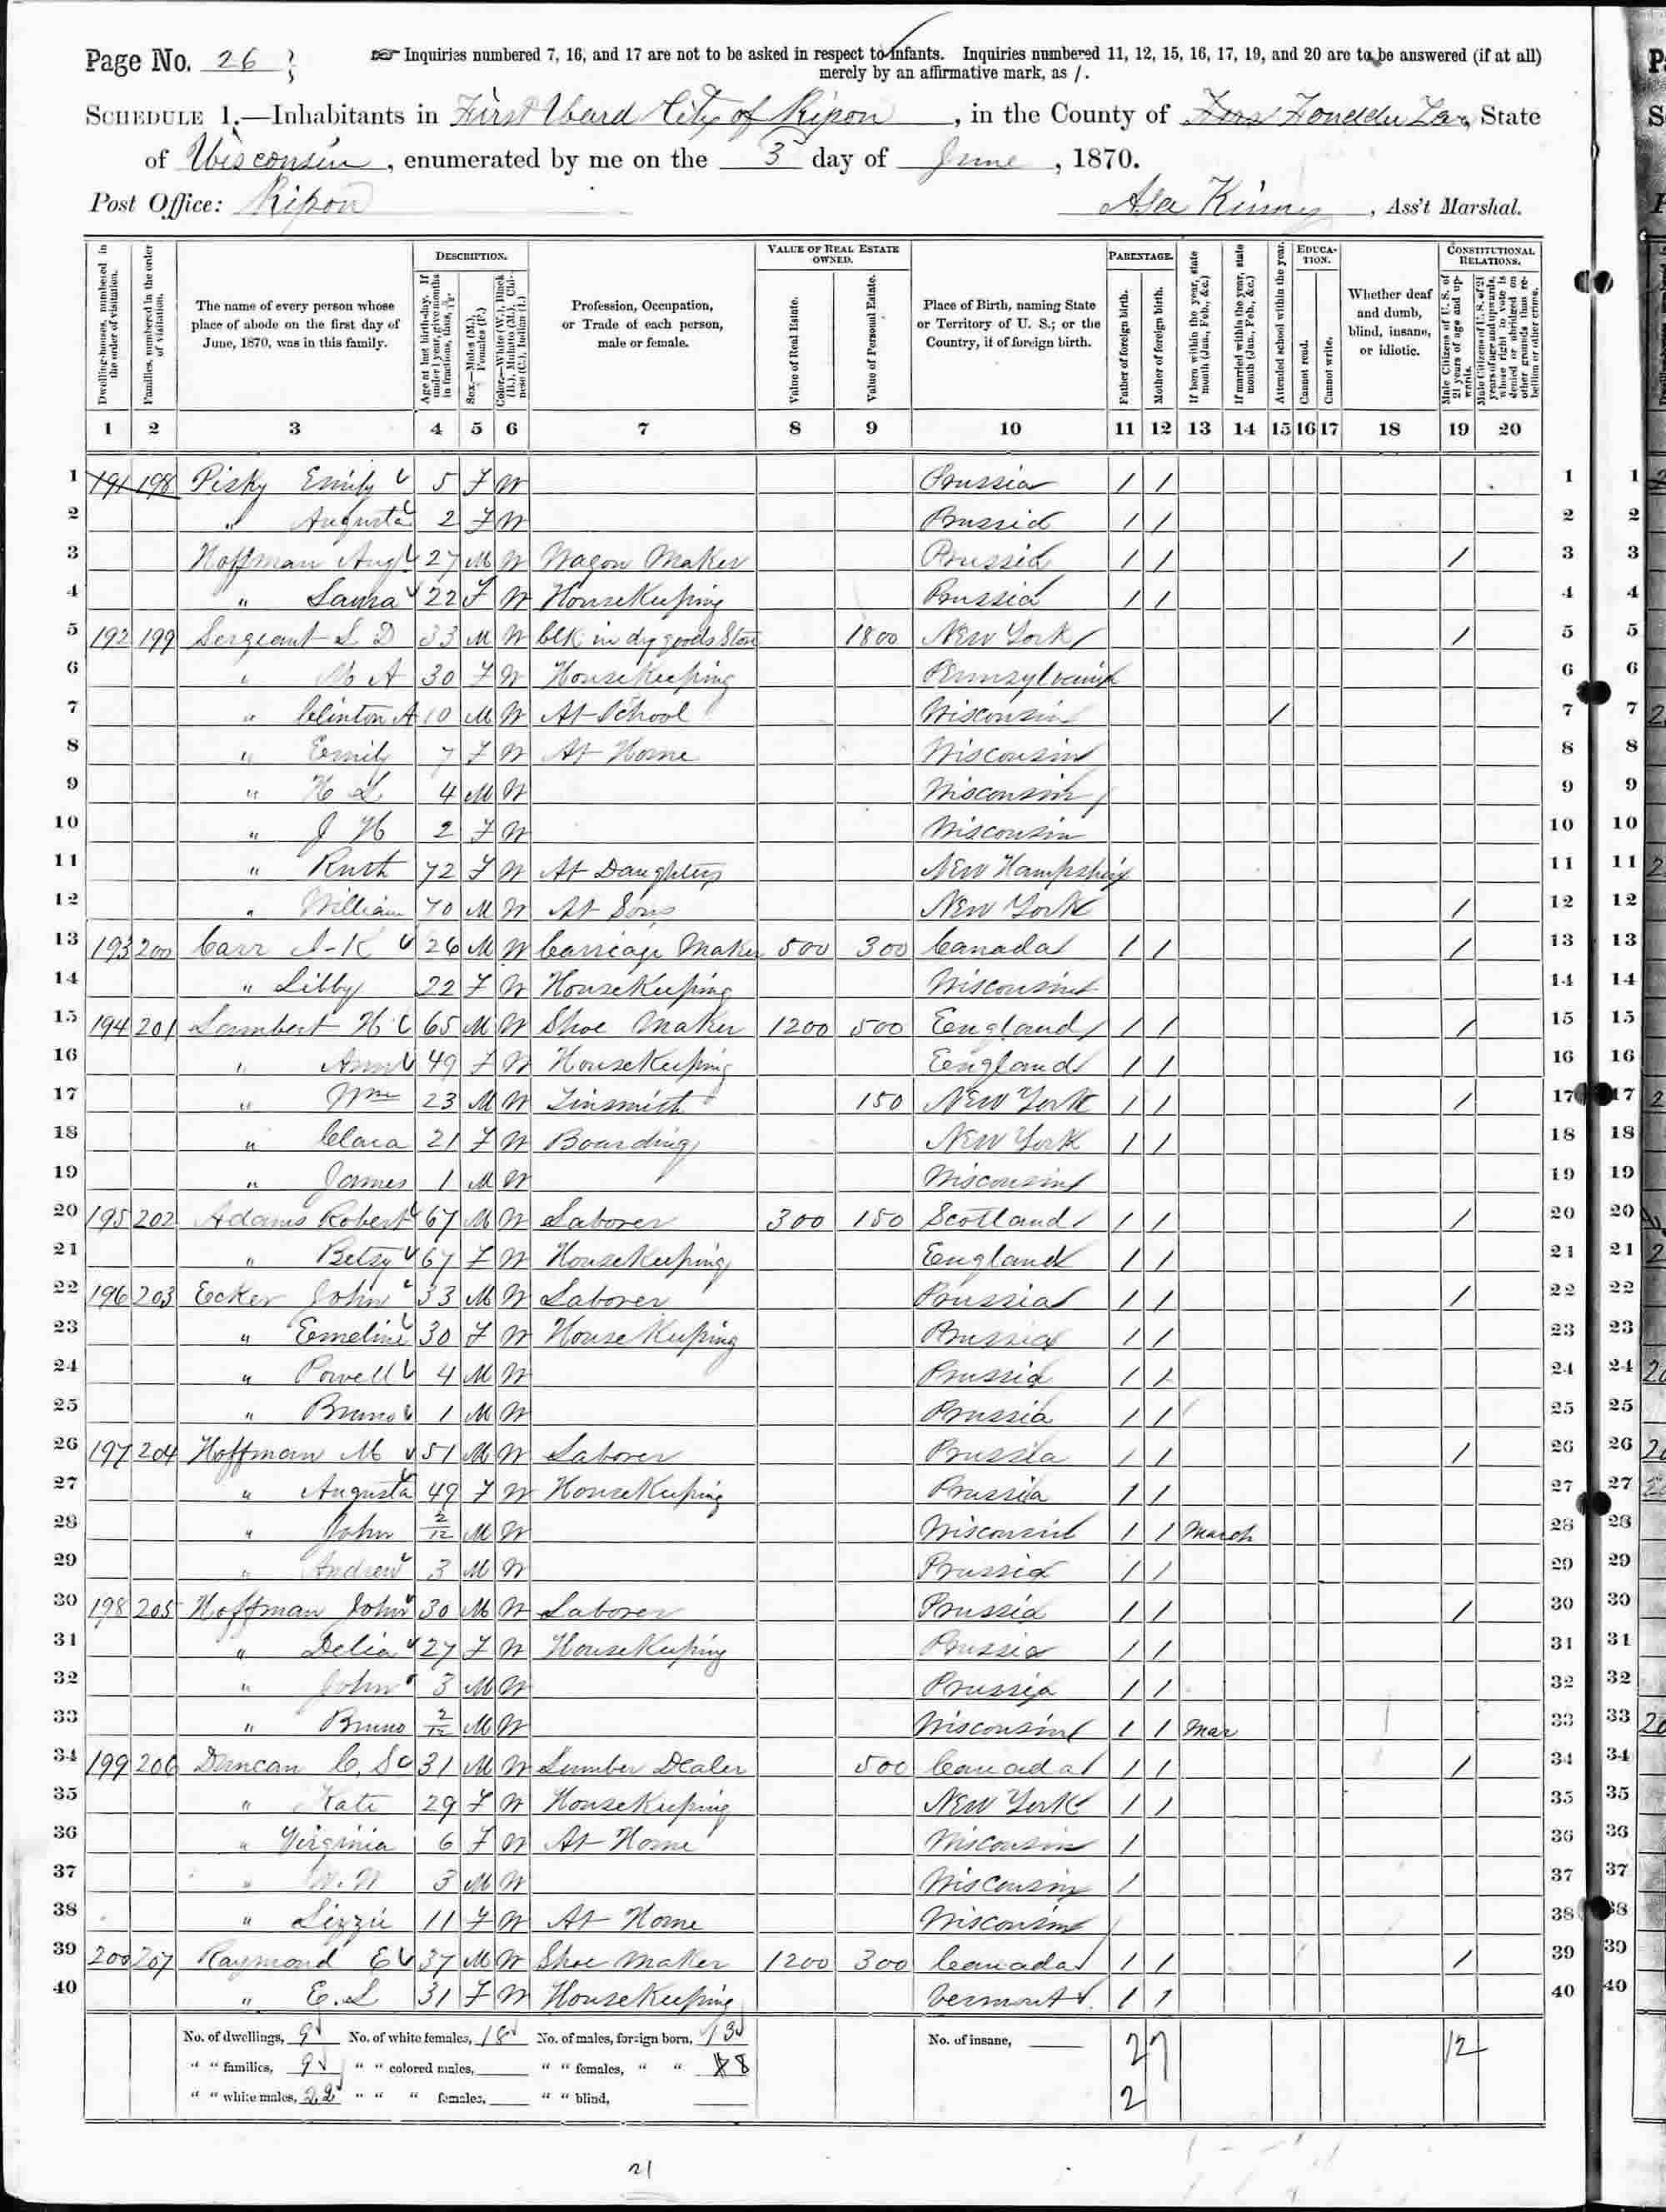 Page No. 26
Inquiries numbered 7, 16, and 17 are not to be asked in respect to infants. Inquiries numbered 11, 12, 15, 16, 17, 19, and 20 are to be answered (if at all)
merely by an affirmative mark, as /.
SCHEDULE 1.—Inhabitants in First Ward City of Ripon, in the County of Fond du Lac, State
of Wisconsin, enumerated by me on the 3 day of June, 1870.
Post Office: Ripon
Asa Kinney, Ass't Marshal.
Dwelling-houses, numbered in the order of visitation.
Families, numbered in the order of visitation.
The name of every person whose place of abode on the first day of June, 1870, was in this family.
DESCRIPTION.
Age at last birth-day. If under 1 year, give months in fractions, thus, 3/12.
Sex.—Males (M.), Females (F.)
Color.—White (W.), Black (B.), Mulatto (M.), Chinese (C.), Indian (I.)
Profession, Occupation, or Trade of each person, male or female.
VALUE OF REAL ESTATE OWNED.
Value of Real Estate.
Value of Personal Estate.
Place of Birth, naming State or Territory of U. S.; or the Country, if of foreign birth.
PARENTAGE.
Father of foreign birth.
Mother of foreign birth.
If born within the year, state month (Jan., Feb., &c.)
If married within the year, state month (Jan., Feb., &c.)
Attended school within the year.
EDUCATION.
Cannot read.
Cannot write.
Whether deaf and dumb, blind, insane, or idiotic.
CONSTITUTIONAL RELATIONS.
Male Citizens of U. S. of 21 years of age and upwards.
Male Citizens of U. S. of 21 years of age and upwards, whose right to vote is denied or abridged on other grounds than rebellion or other crime.
1 2 3 4 5 6 7 8 9 10 11 12 13 14 15 16 17 18 19 20
1 191 198 Pisky Emily 5 F W Prussia / / 1
2 " Augusta 2 F W Prussia / / 2
3 Hoffman Aug 27 M W Wagon Maker Prussia / / / 3
4 " Laura 22 F W HouseKeeping Prussia / / 4
5 192 199 Sergeant L D 33 M W Clk in dry goods Store 1800 New York / 5
6 " M A 30 F W HouseKeeping Pennsylvania 6
7 " Clinton A 10 M W At School Wisconsin / 7
8 " Emily 7 F W At Home Wisconsin 8
9 " H L 4 M W Wisconsin 9
10 " J H 2 F W Wisconsin 10
11 " Ruth 72 F W At Daughters New Hampshire 11
12 " William 70 M W At Sons New York / 12
13 193 200 Carr I-K 26 M W Carriage Maker 500 300 Canada / / / 13
14 " Libby 22 F W HouseKeeping Wisconsin 14
15 194 201 Lambert H C 65 M W Shoe Maker 1200 500 England / / / 15
16 " Ann 49 F W HouseKeeping England / / 16
17 " Wm 23 M W Tinsmith 150 New York / / / 17
18 " Clara 21 F W Boarding New York / / 18
19 " James 1 M W Wisconsin 19
20 195 202 Adams Robert 67 M W Laborer 300 150 Scotland / / / 20
21 " Betsy 67 F W HouseKeeping England / / 21
22 196 203 Ecker John 33 M W Laborer Prussia / / / 22
23 " Emeline 30 F W House Keeping Prussia / / 23
24 " Powell 4 M W Prussia / / 24
25 " Bruno 1 M W Prussia / / 25
26 197 204 Hoffman M 51 M W Laborer Prussia / / / 26
27 " Augusta 49 F W HouseKeeping Prussia / / 27
28 " John 2/12 M W Wisconsin / / March 28
29 " Andrew 3 M W Prussia / / 29
30 198 205 Hoffman John 30 M W Laborer Prussia / / / 30
31 " Delia 27 F W HouseKeeping Prussia / / 31
32 " John 3 M W Prussia / / 32
33 " Bruno 2/12 M W Wisconsin / / Mar 33
34 199 206 Duncan C. S 31 M W Lumber Dealer 500 Canada / / / 34
35 " Kate 29 F W HouseKeeping New York / / 35
36 " Virginia 6 F W At Home Wisconsin / 36
37 " W. W 3 M W Wisconsin / 37
38 " Lizzie 11 F W At Home Wisconsin 38
39 200 207 Raymond E 37 M W Shoe Maker 1200 300 Canada / / / 39
40 " E. L 31 F W HouseKeeping Vermont / / 40
No. of dwellings, 9 No. of white females, 18 No. of males, foreign born, 13 No. of insane, 27 12
" " families, 9 " " colored males, " " females, " " 8
" " white males, 22 " " " females, " " blind, 2
21